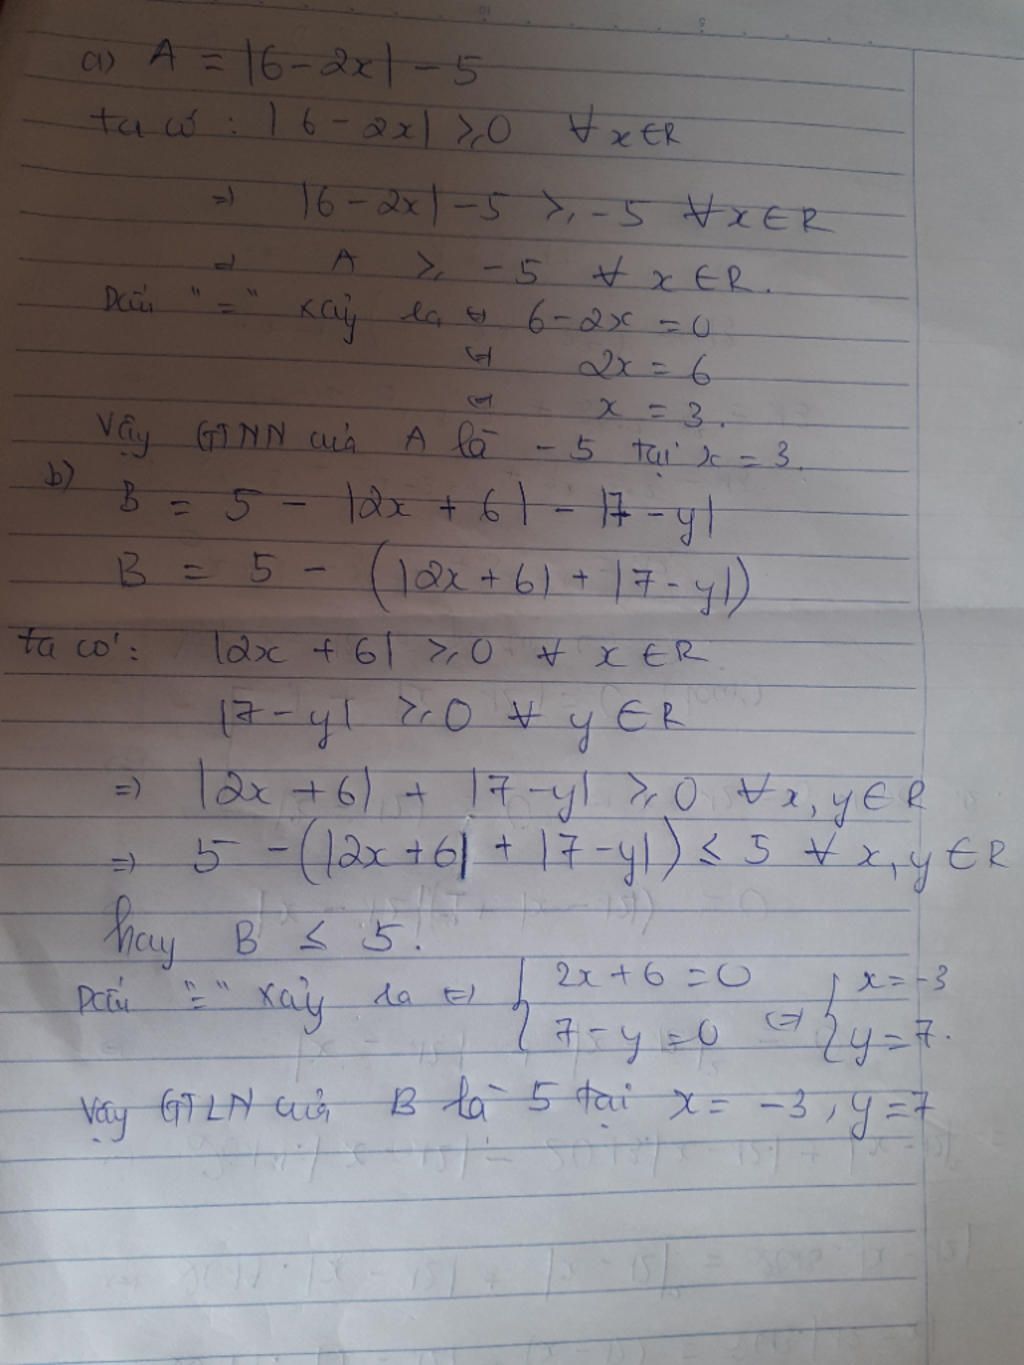 a) A = |6 - 2x| - 5
ta có : |6 - 2x| ⩾ 0 ∀ x ∈ R
=> |6 - 2x| - 5 ⩾ -5 ∀ x ∈ R
=> A ⩾ -5 ∀ x ∈ R.
Dấu "=" xảy ra <=> 6 - 2x = 0
<=> 2x = 6
<=> x = 3.
Vậy GTNN của A là -5 tại x = 3.
b)
B = 5 - |2x + 6| - |7 - y|
B = 5 - (|2x + 6| + |7 - y|)
ta có: |2x + 6| ⩾ 0 ∀ x ∈ R
|7 - y| ⩾ 0 ∀ y ∈ R
=> |2x + 6| + |7 - y| ⩾ 0 ∀ x, y ∈ R
=> 5 - (|2x + 6| + |7 - y|) ≤ 5 ∀ x, y ∈ R
hay B ≤ 5.
Dấu "=" xảy ra <=> { 2x + 6 = 0 { x = -3
7 - y = 0 <=> y = 7.
Vậy GTLN của B là 5 tại x = -3, y = 7